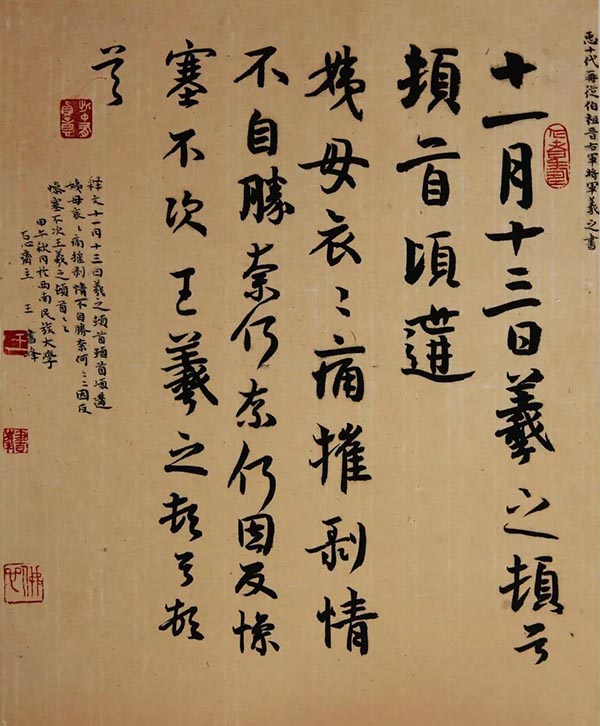 十代再從伯祖晋右軍將軍羲之書
十一月十三日羲之頓首
頓首頃遘
姨母哀〻痛摧剥情
不自勝奈何奈何因反慘
塞不次王羲之頓首頓
首
释文十一月十三日羲之頓首頓首頃遘
姨母哀〻痛摧剥情不自勝奈何〻〻因反
慘塞不次王羲之頓首〻〻
甲午秋月於西南民族大學
心齋主 王書峰
王